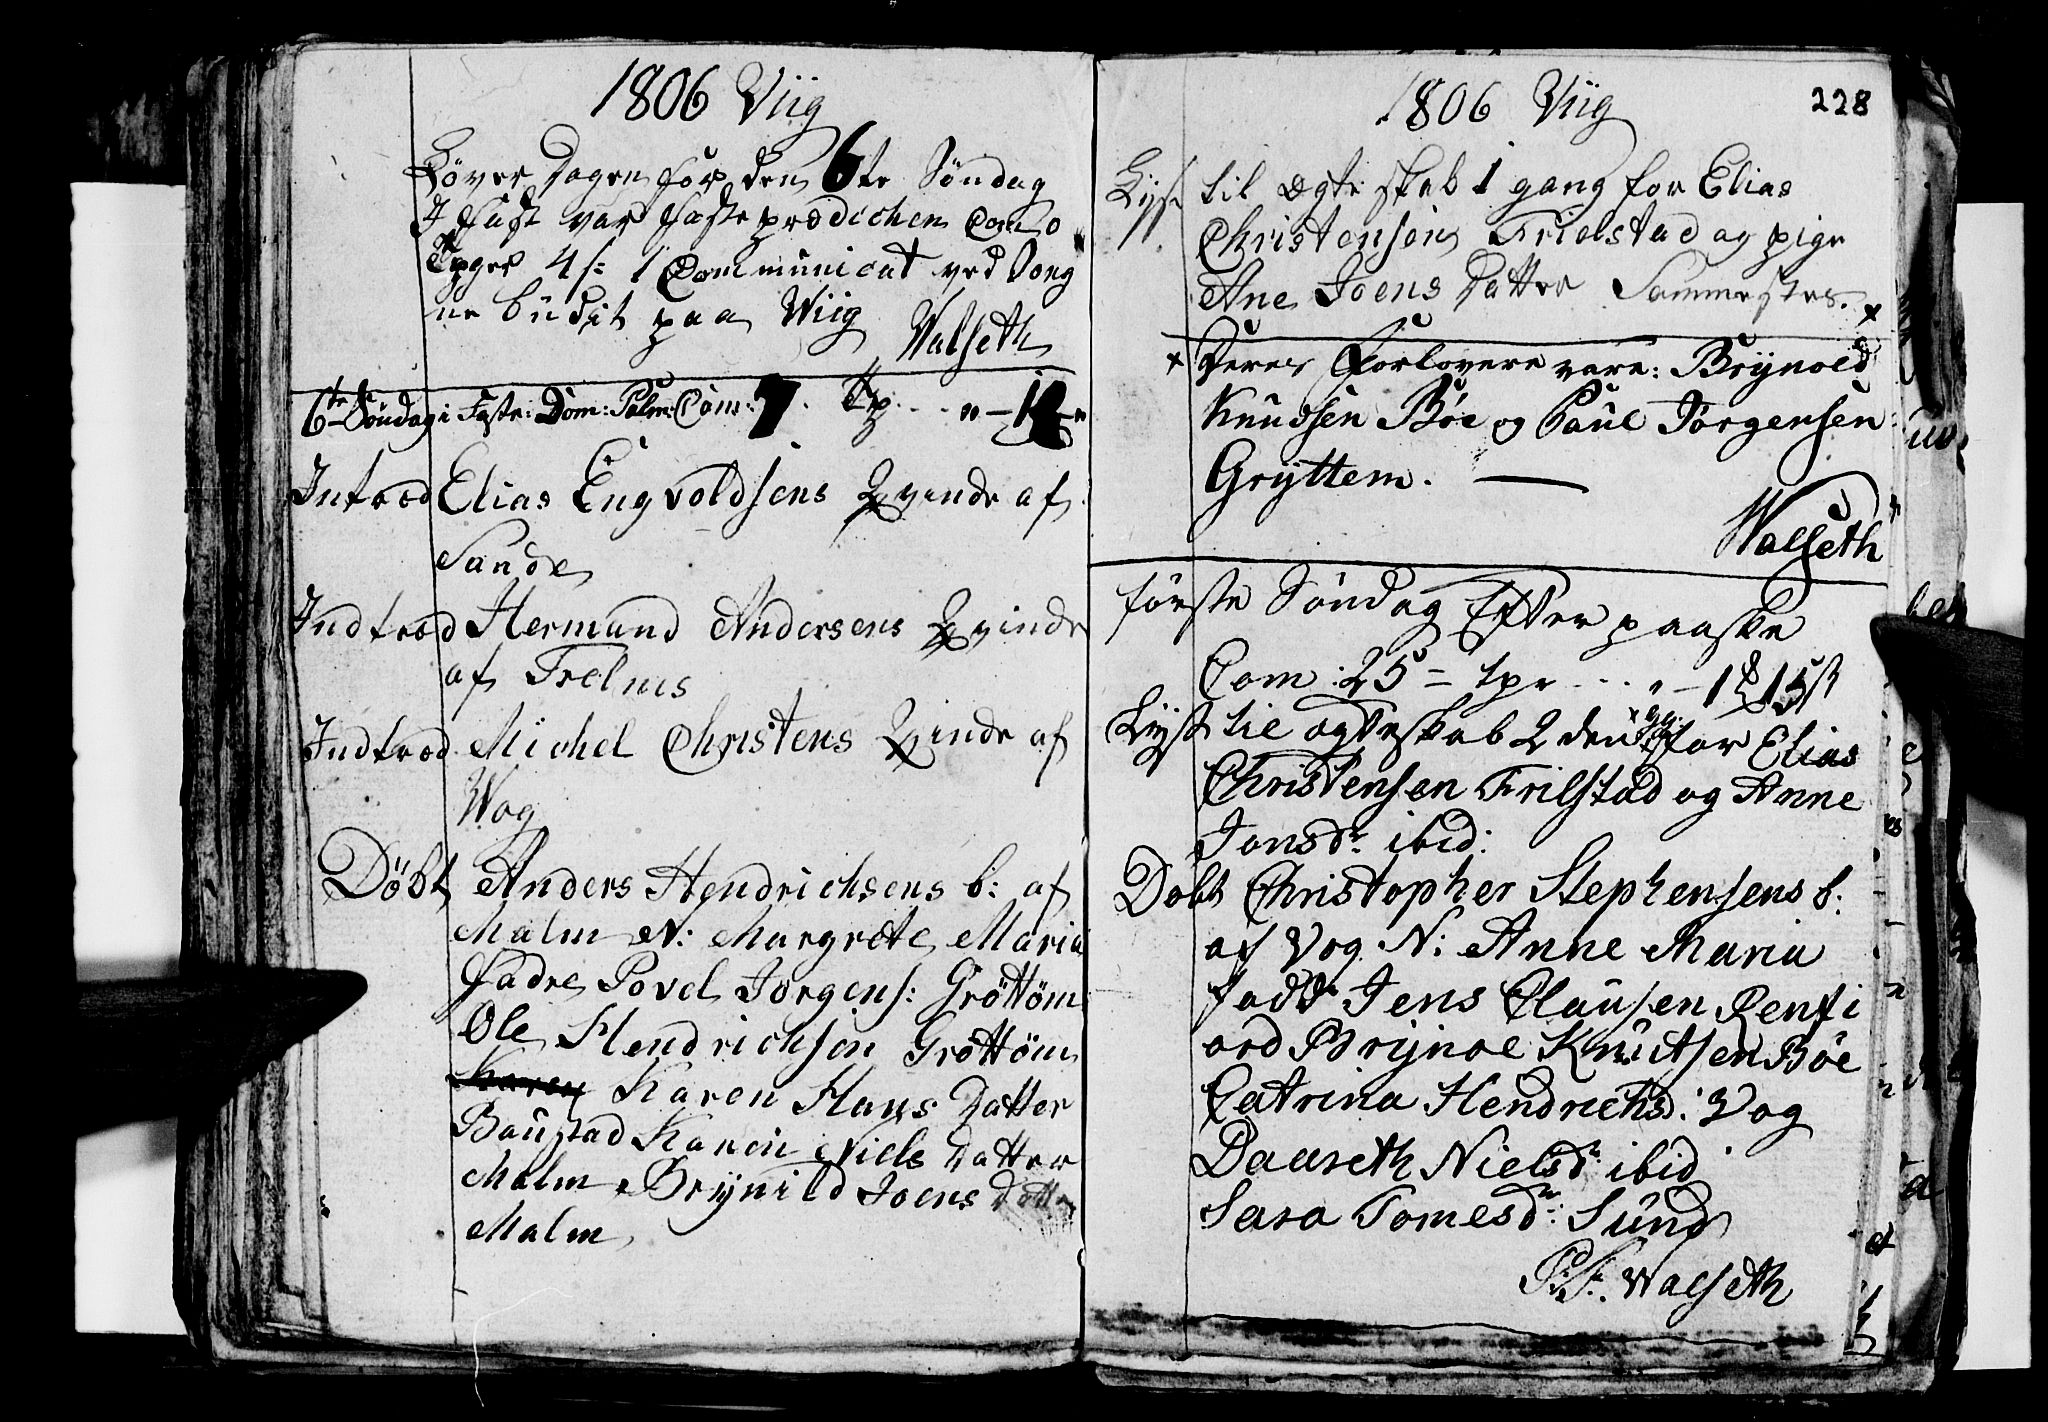 1806 Viig
Löver Dagen for den 6te Söndag
I fast var faste prædichen Com o
Tpger 4 s: 1 Communicat ved Song
ne budit paa Wiig
Walseth
6te Söndag i Faste: Dom: Palm: Com: 7. Tp
Introd Elias Engvoldsens Qvinde af
Sande
Indtrod Hermand Andersens Qvinde
af Frelnes
Indtrod Michel Christens Qvinde af
Wog
Döbt Anders Hendrichsens b: af
Malm N: Margrete Maria
fadre Povel Jörgens: Gröttöm
Ole Hendrichsen Gröttöm
Karen Karen Hans Datter
Baustad Karen Niels Datter
Malm Brÿnild Joens Datter
Malm
1806 Viig
228
Lyst til ægte skab 1 gang for Elias
Christensen Frielstad og pige
Ane Joens Datter Sammestes. x
x Deres Forlovere vare: Brÿnold
Knudsen Böe og Paul Jörgensen
Grÿttem. —
Walseth
förste Söndag Efter paaske
Com: 25 = tpr ... " - 1 15 s
Lÿst til ægteskab 2 den gg: for Elias
Christensen Frilstad og Anne
Jonsdr ibid:
Döbt Christopher Stephensens b:
af Vog N: Anne Maria
fadd Jens Clausen Renfi
ord Brÿnoe Knutsen Böe
Catrina Hendrichsd: Vog
Daareth Nielsdr ibid
Sara Tomesdr: Sund
Walseth